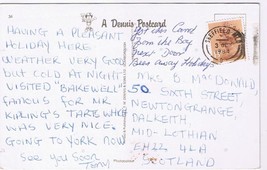 A Dennis Postcard
HAVING A PLEASANT
HOLIDAY HERE
WEATHER VERY GOOD
BUT COLD AT NIGHT
VISITED BAKEWELL
FAMOUS FOR MR
KIPLING'S TARTS WHICH
WAS VERY NICE.
GOING TO YORK NOW
See you soon
Tony
Got this Card
from the Boy
next Door
Been away Holiday
MRS B MACDONALD,
50 SIXTH STREET,
NEWTONGRANGE,
DALKEITH
MID-LOTHIAN
EH22 4LA
SCOTLAND